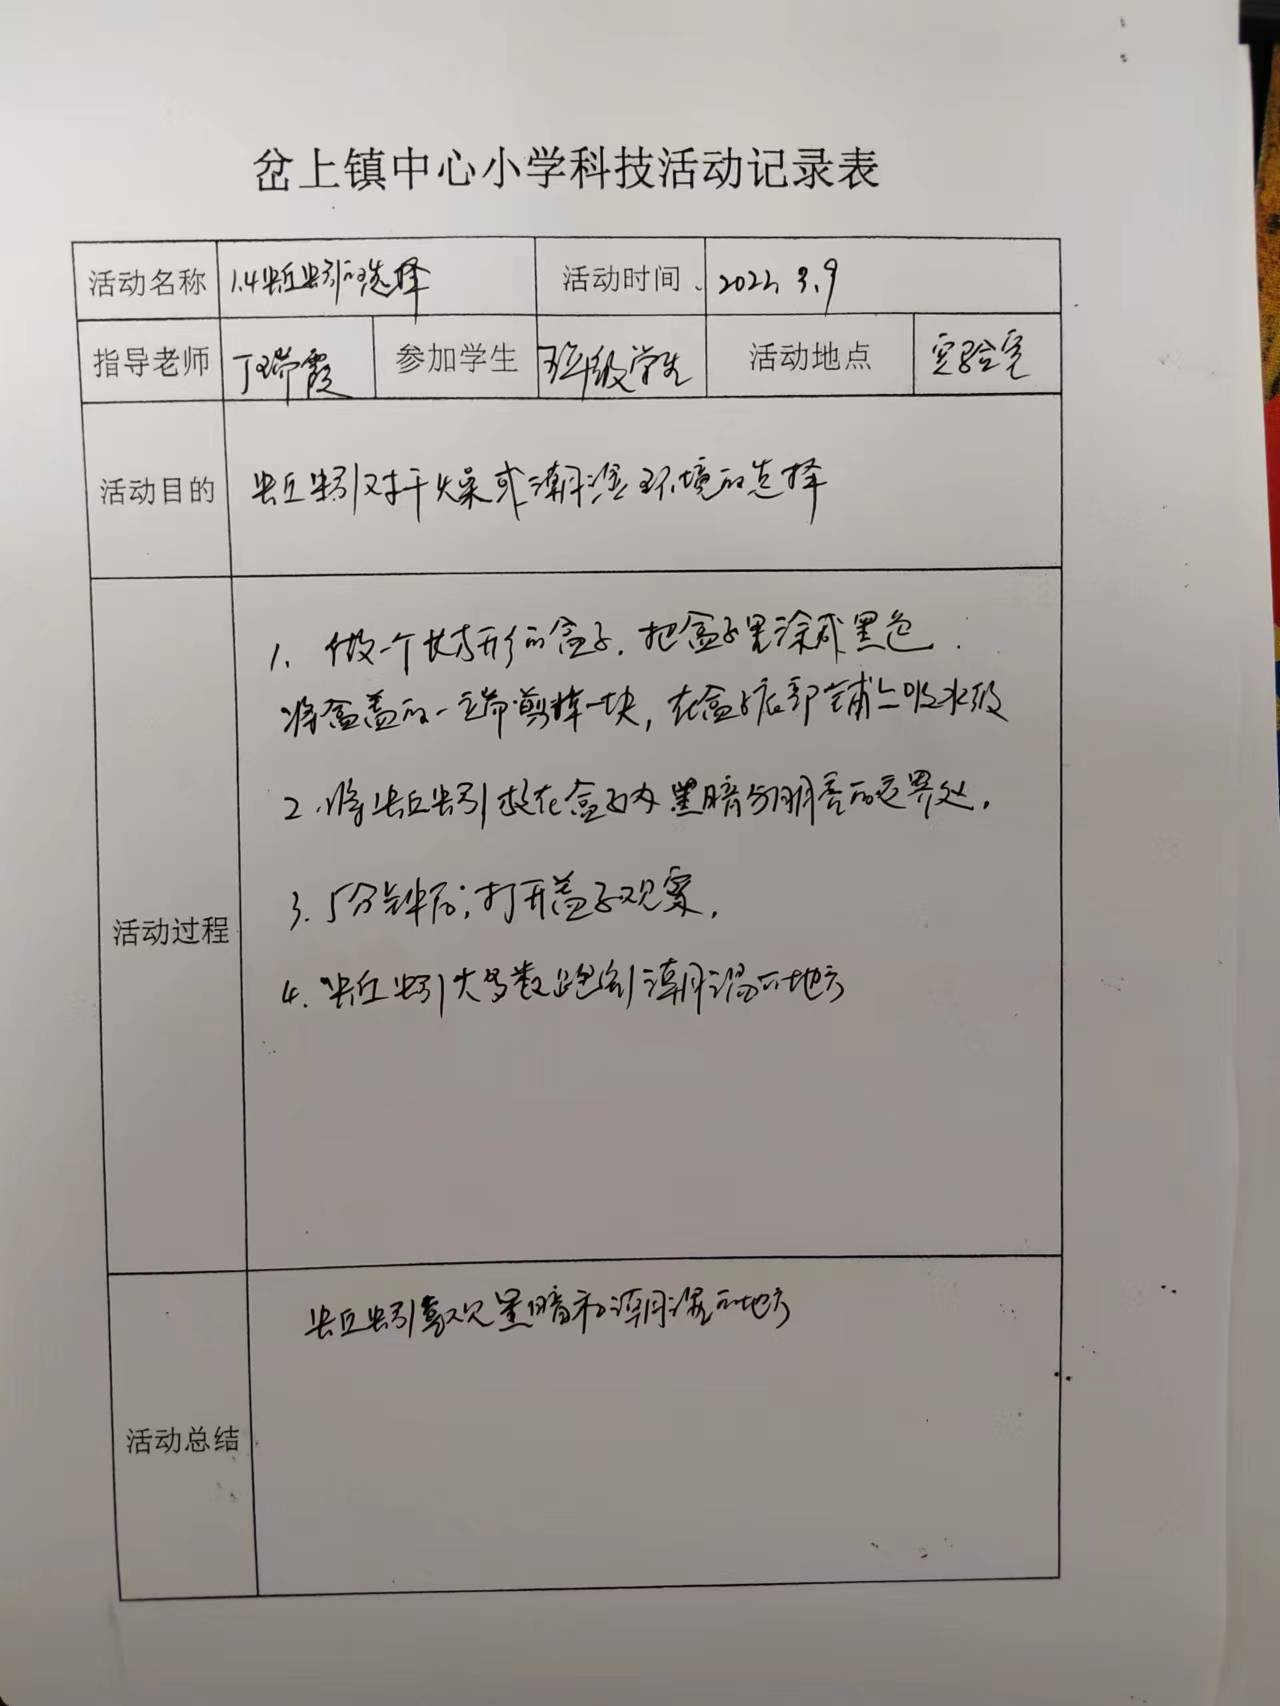 岔上镇中心小学科技活动记录表
活动名称 1.4蚯蚓的选择 活动时间 2022.3.9
指导老师 丁瑞霞 参加学生 五年级学生 活动地点 实验室
活动目的 蚯蚓对干燥或潮湿环境的选择
活动过程
1. 做一个长方形的盒子.把盒子里涂成黑色.
将盒盖的一端剪掉一块,在盒子底部铺上吸水纸
2.将蚯蚓放在盒子内黑暗与明亮的交界处.
3.5分钟后;打开盖子观察.
4.蚯蚓大多数跑到潮湿的地方
活动总结
蚯蚓喜欢黑暗和潮湿的地方